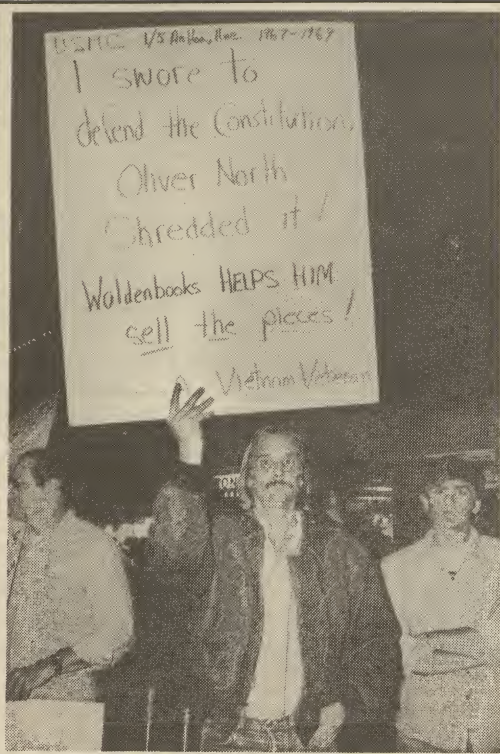 USMC 1/5 An Hoa, 1967-1969
I swore to
defend the Constitution,
Oliver North
Shredded it!
Waldenbooks HELPS HIM
sell the pieces!
A Vietnam Veteran